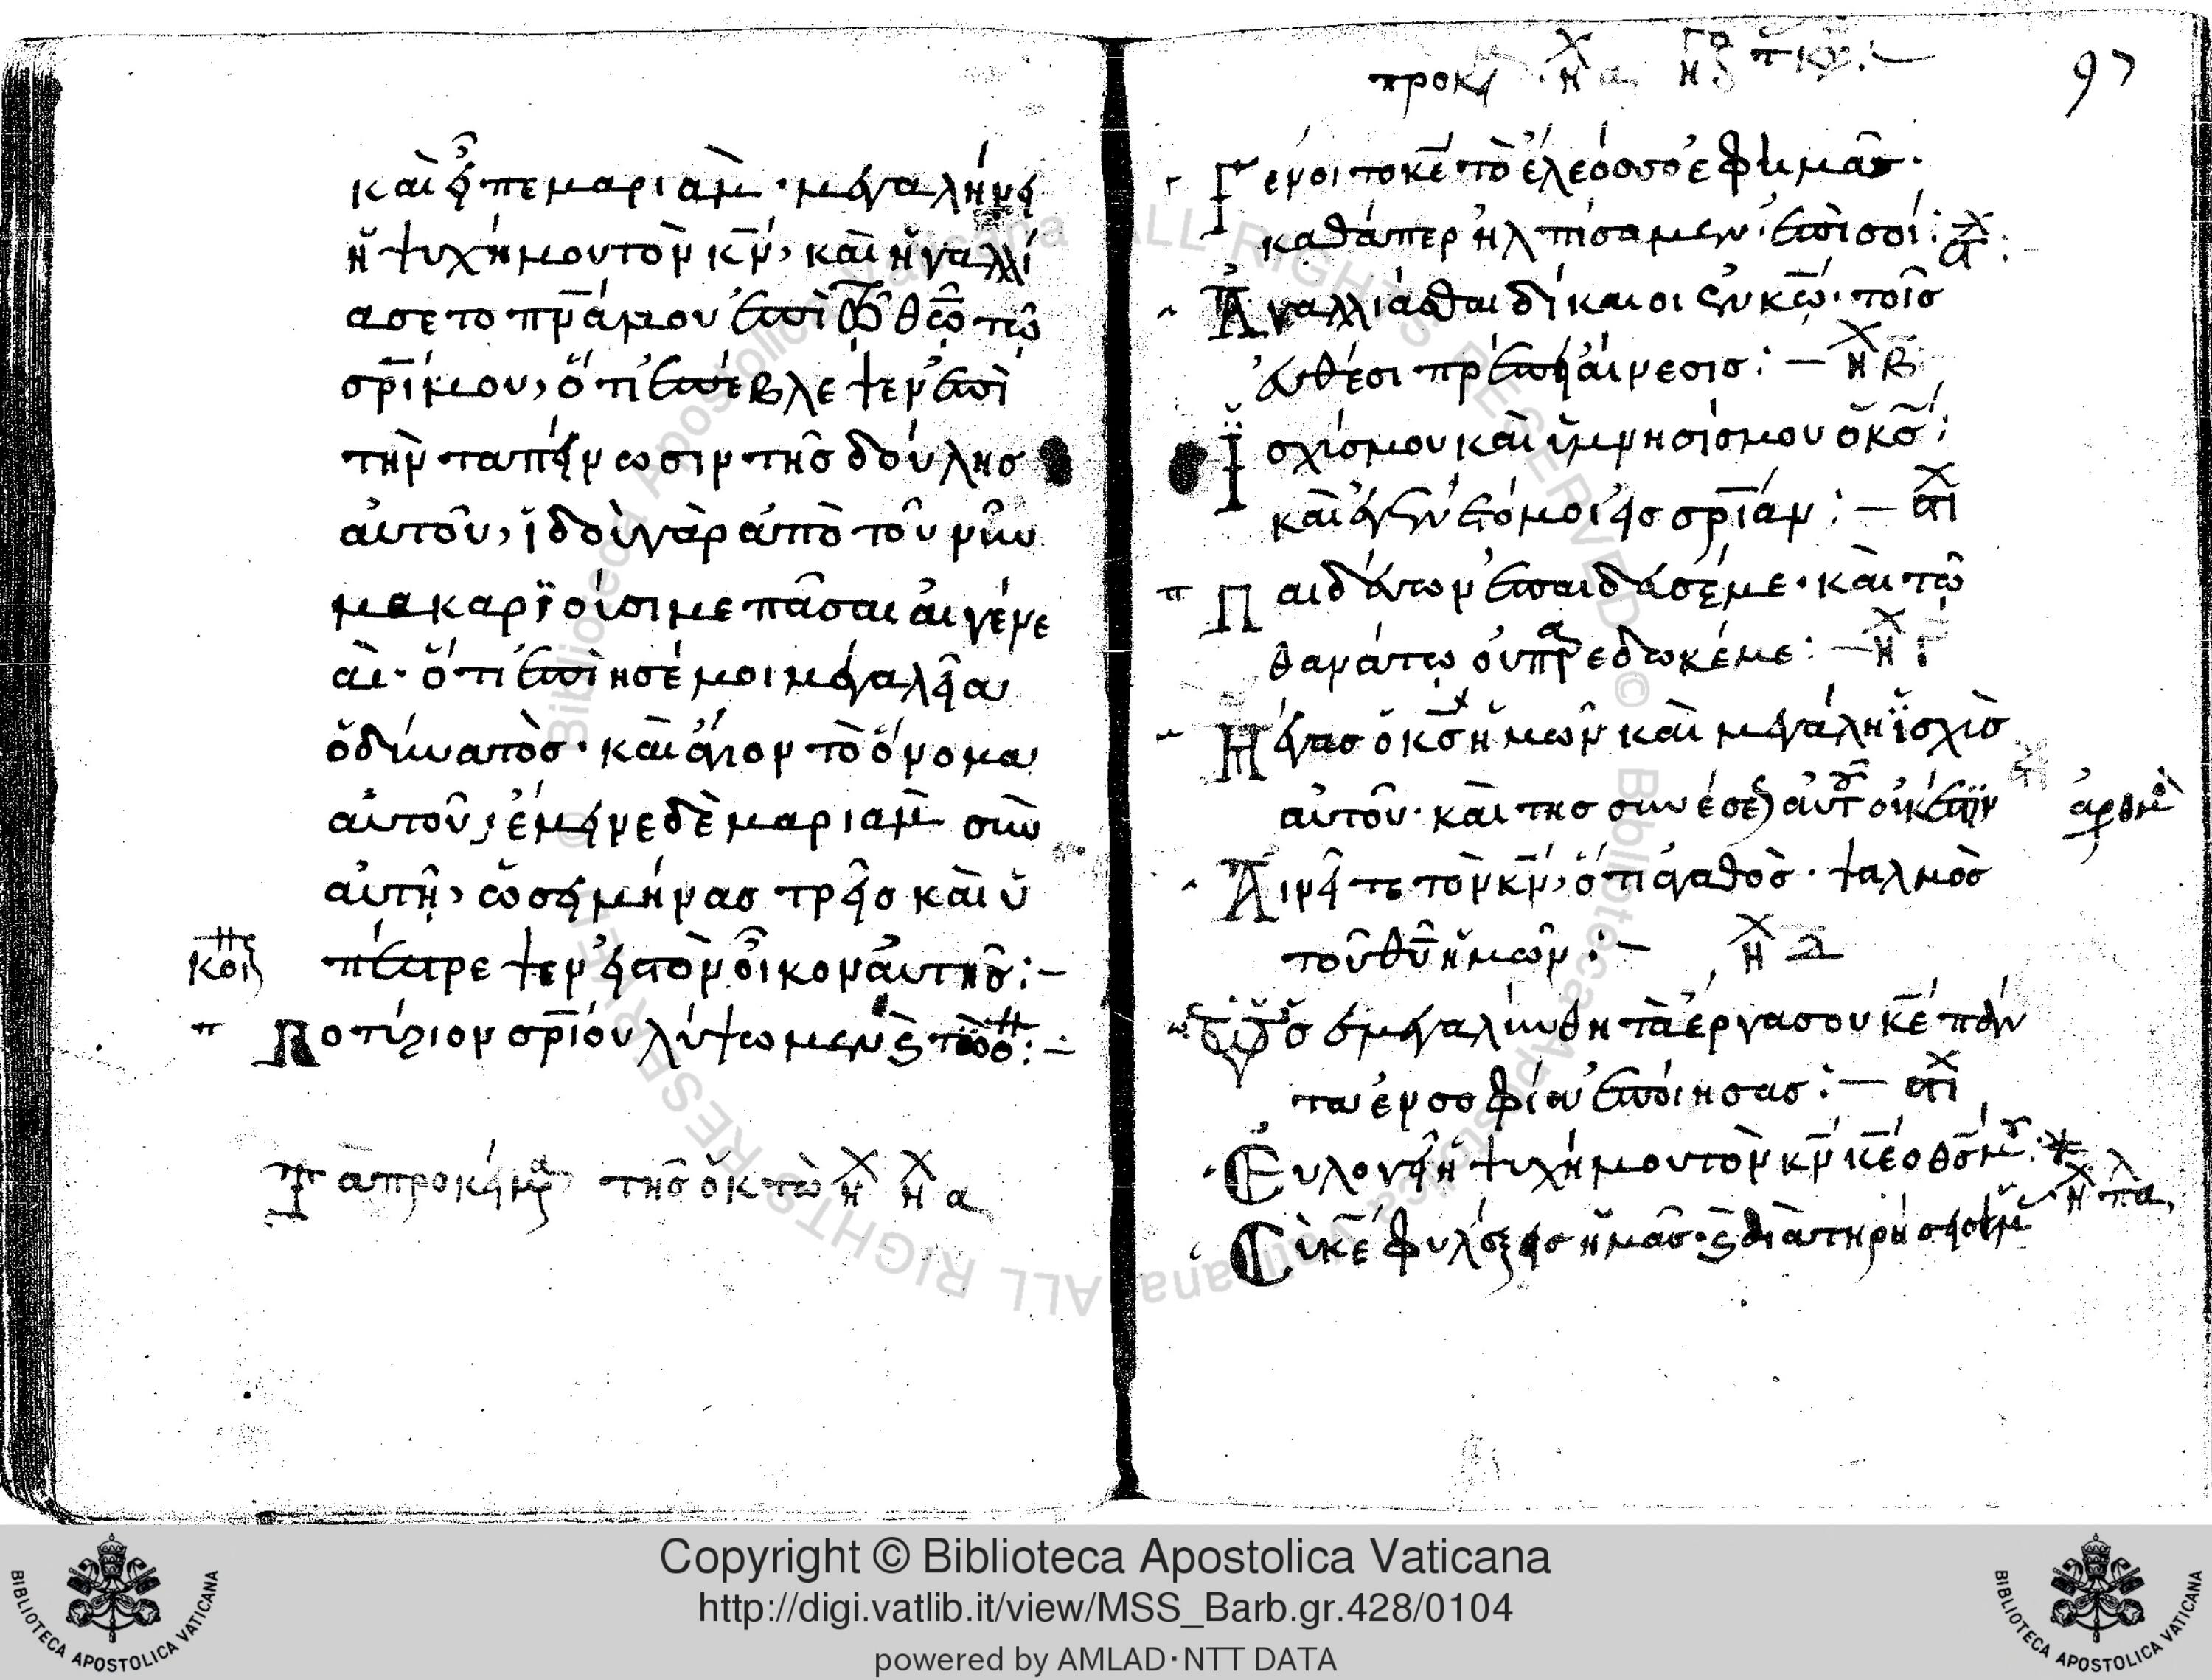 καὶ εἶπε μαριὰμ · μεγαλήνει
ἡ ψυχήμου τὸν κ̅ν̅, καὶ ἠγαλλί
ασε το πν̅άμου ἐπὶ τῶ θεῶ τῶ
σρ̅ίμου, ὅτι ἐπέβλεψεν ἐπὶ
τὴν ταπείνωσιν τῆσ δούλησ
αὐτοῦ, ἰδοὺ γὰρ ἀπὸ τοῦ νῦν
μακαριοῦσι με πᾶσαι αἱ γένε
αὶ · ὅτι ἐπίησέ μοι μεγαλεῖα
ὁ δύνατὸσ · καὶ ἅγιον τὸ ὅνομα
αὐτοῦ, ἐμεινε δὲ μαριὰμ σὺν
αὐτῆ, ὡσεὶ μήνασ τρεῖσ καὶ ὑ
κοι πέστρεψεν εἰσ τὸν οἶκον αὐτῆσ :–
π Ποτύριον σρ̅ίου λύψωμεν
Τὰ προκείμ τῆσ ὀκτὼ ἤχ ἤχ α
προκ ἤχ α
97
Γένοιτο κε̅ τὸ ἔλεόσ σου ἐφ ἡμᾶσ ·
καθάπερ ἠλπίσαμεν ἐπὶ σοί :
Ἀγαλλιάσθαι δίκαιοι ἐν κω̅ · τοῖσ
εὐθέσι πρέπει αίνεσισ : – ἤχ β
Ἰσχίσμου καὶ ὕμνησίσμου ὁ κσ̅ :
καὶ ἐγένετό μοι εἰσ σρ̅ίαν : –
π Παιδεύων ἐπαίδευσέμε · καὶ τῶ
θανάτω οὐ παρεδωκέμε : – ἤχ Γ
Μέγασ ὁ κσ̅ ἡμῶν καὶ μεγάλη ἰσχὶσ
αὐτοῦ · καὶ τησ συνέσε αὐτ οὐκ ἔστιν ἀρθμὸ
Αἰνεῖτε τὸν κν̅, ὅτι ἀγαθὸσ · ψαλμὸσ
τοῦ θυ̅ ἡμῶν : – ἤχ δ
Ὡσ ἐμεγαλύνθη τὰ ἔργα σου κε̅ πάν
τα ἐν σοφία ἐποίησασ : –
Ἐυλογει ἡ ψυχήμου τὸν κν̅ κε̅ ὁ θσ̅ μ
Σὺ κε̅ φυλάξεισ ἡμᾶσ · διατηρήσ ἤχ πλ α
Copyright © Biblioteca Apostolica Vaticana
http://digi.vatlib.it/view/MSS_Barb.gr.428/0104
powered by AMLAD·NTT DATA
BIBLIOTECA APOSTOLICA VATICANA
BIBLIOTECA APOSTOLICA VATICANA